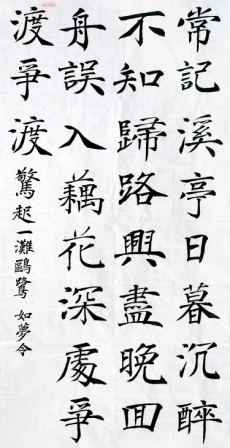 常記溪亭日暮沉醉
不知歸路興盡晚囬
舟誤入藕花深處爭
渡爭渡
驚起一灘鷗鷺 如夢令